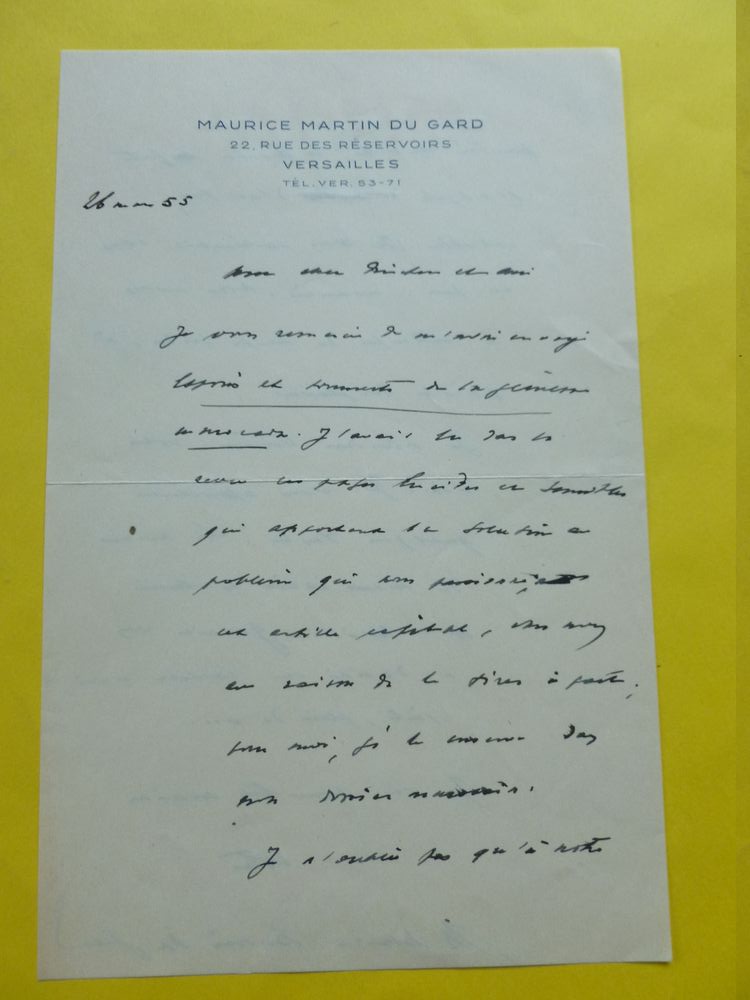 MAURICE MARTIN DU GARD
22, RUE DES RÉSERVOIRS
VERSAILLES
TÉL. VER. 53-71
26 mars 55
mon cher Directeur et ami
Je vous remercie de m'avoir envoyé
Espoirs et tourments de la jeunesse
marocaine. J'avais lu dans la
revue ces pages lucides et sensibles
qui apportent la solution au
problème qui
cet article capital, vous avez
eu raison de le tirer à part ;
pour moi, je le conserve dans
mon dossier marocain.
Je n'oublie pas qu'à notre